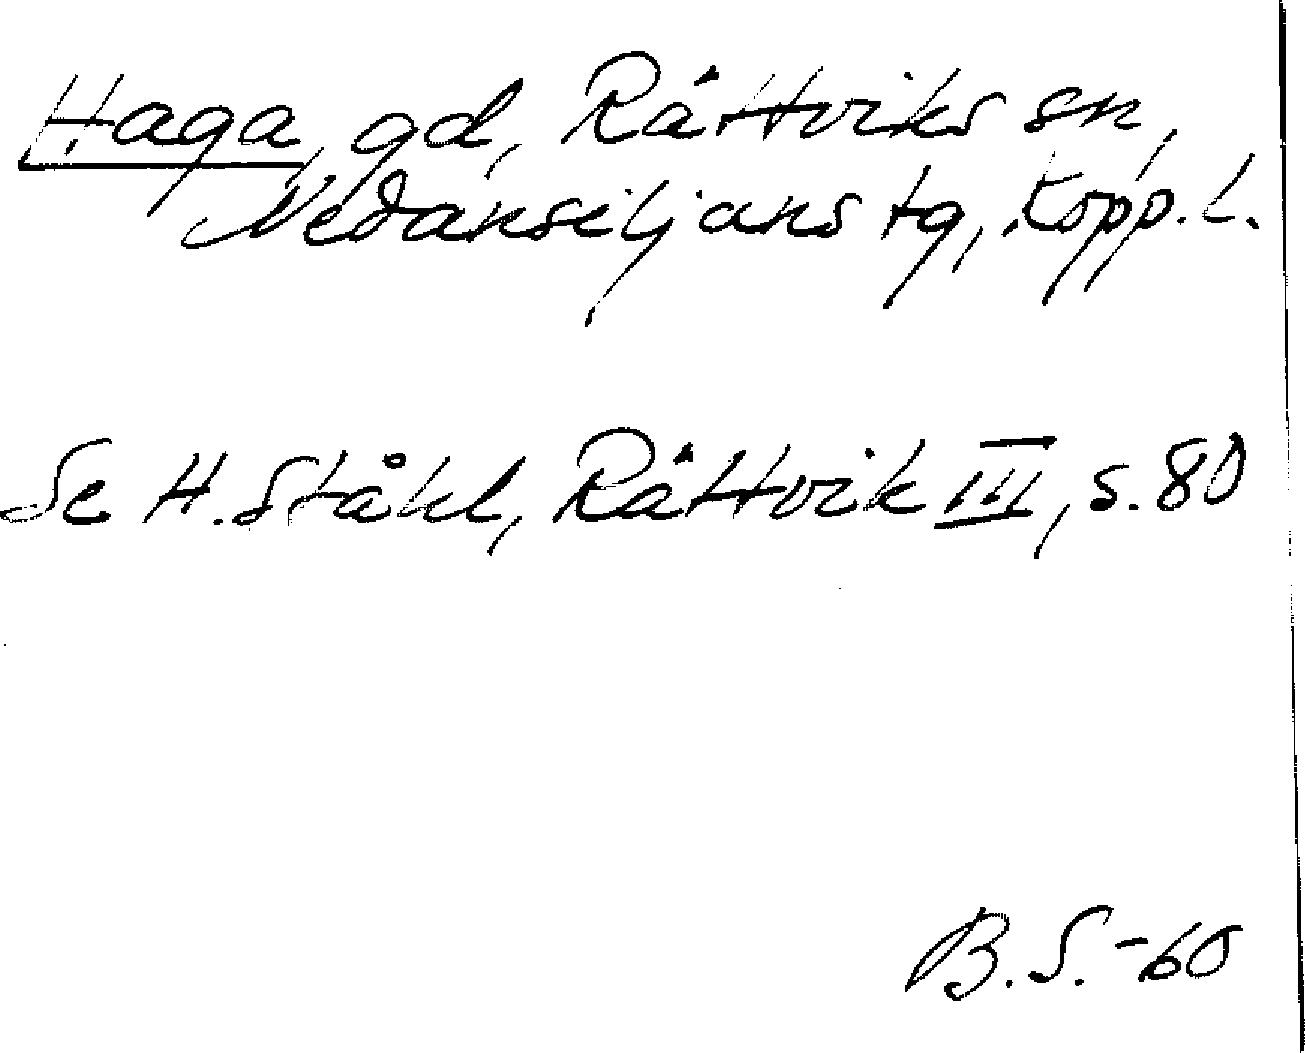 Haga, gd, Rättviks sn,
Nedansiljans tg, Kopp. l.
Se H. Ståhl, Rättvik III, s. 80
B. S. -60